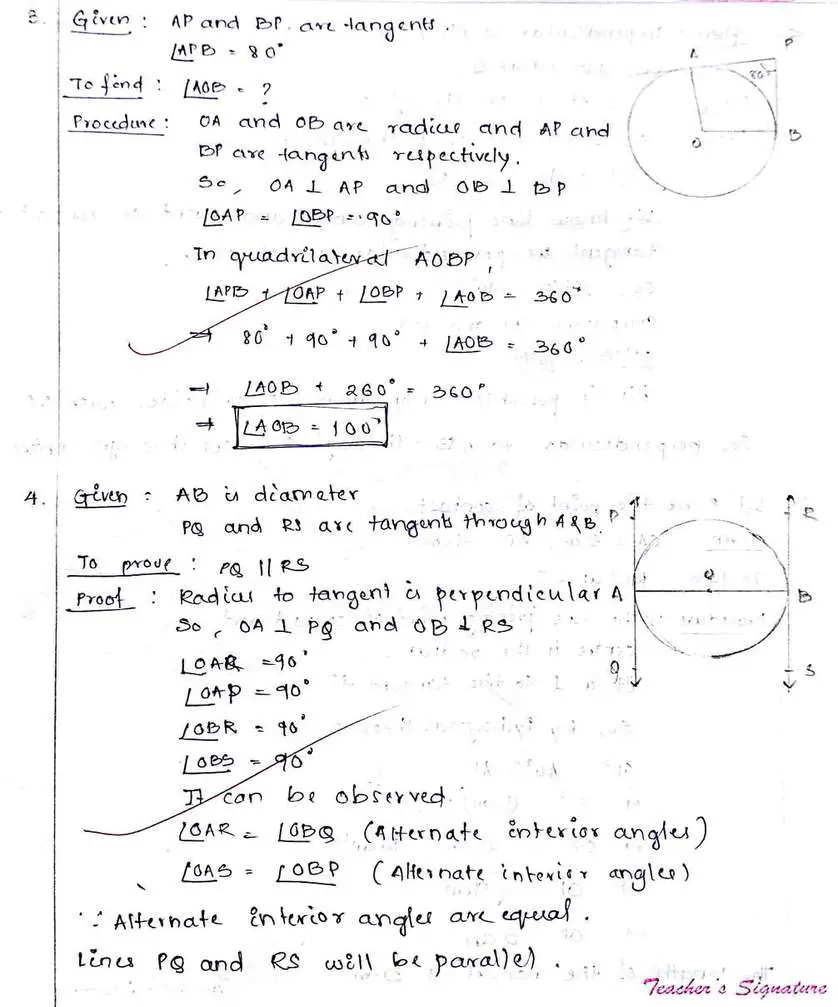 3. Given : AP and BP are tangents.
∠APB = 80°
To find : ∠AOB = ?
Procedure : OA and OB are radius and AP and
BP are tangents respectively.
So, OA ⊥ AP and OB ⊥ BP
∠OAP = ∠OBP = 90°
In quadrilateral AOBP,
∠APB + ∠OAP + ∠OBP + ∠AOB = 360°
⇒ 80° + 90° + 90° + ∠AOB = 360°
⇒ ∠AOB + 260° = 360°
⇒ ∠AOB = 100°
A
P
80°
O
B
4. Given : AB is diameter
PQ and RS are tangents through A & B.
To prove : PQ || RS
Proof : Radius to tangent is perpendicular
So, OA ⊥ PQ and OB ⊥ RS
∠OAQ = 90°
∠OAP = 90°
∠OBR = 90°
∠OBS = 90°
It can be observed
∠OAR = ∠OBQ (Alternate interior angles)
∠OAS = ∠OBP (Alternate interior angles)
∵ Alternate interior angles are equal.
Lines PQ and RS will be parallel.
P
R
O
A
B
Q
S
Teacher's Signature